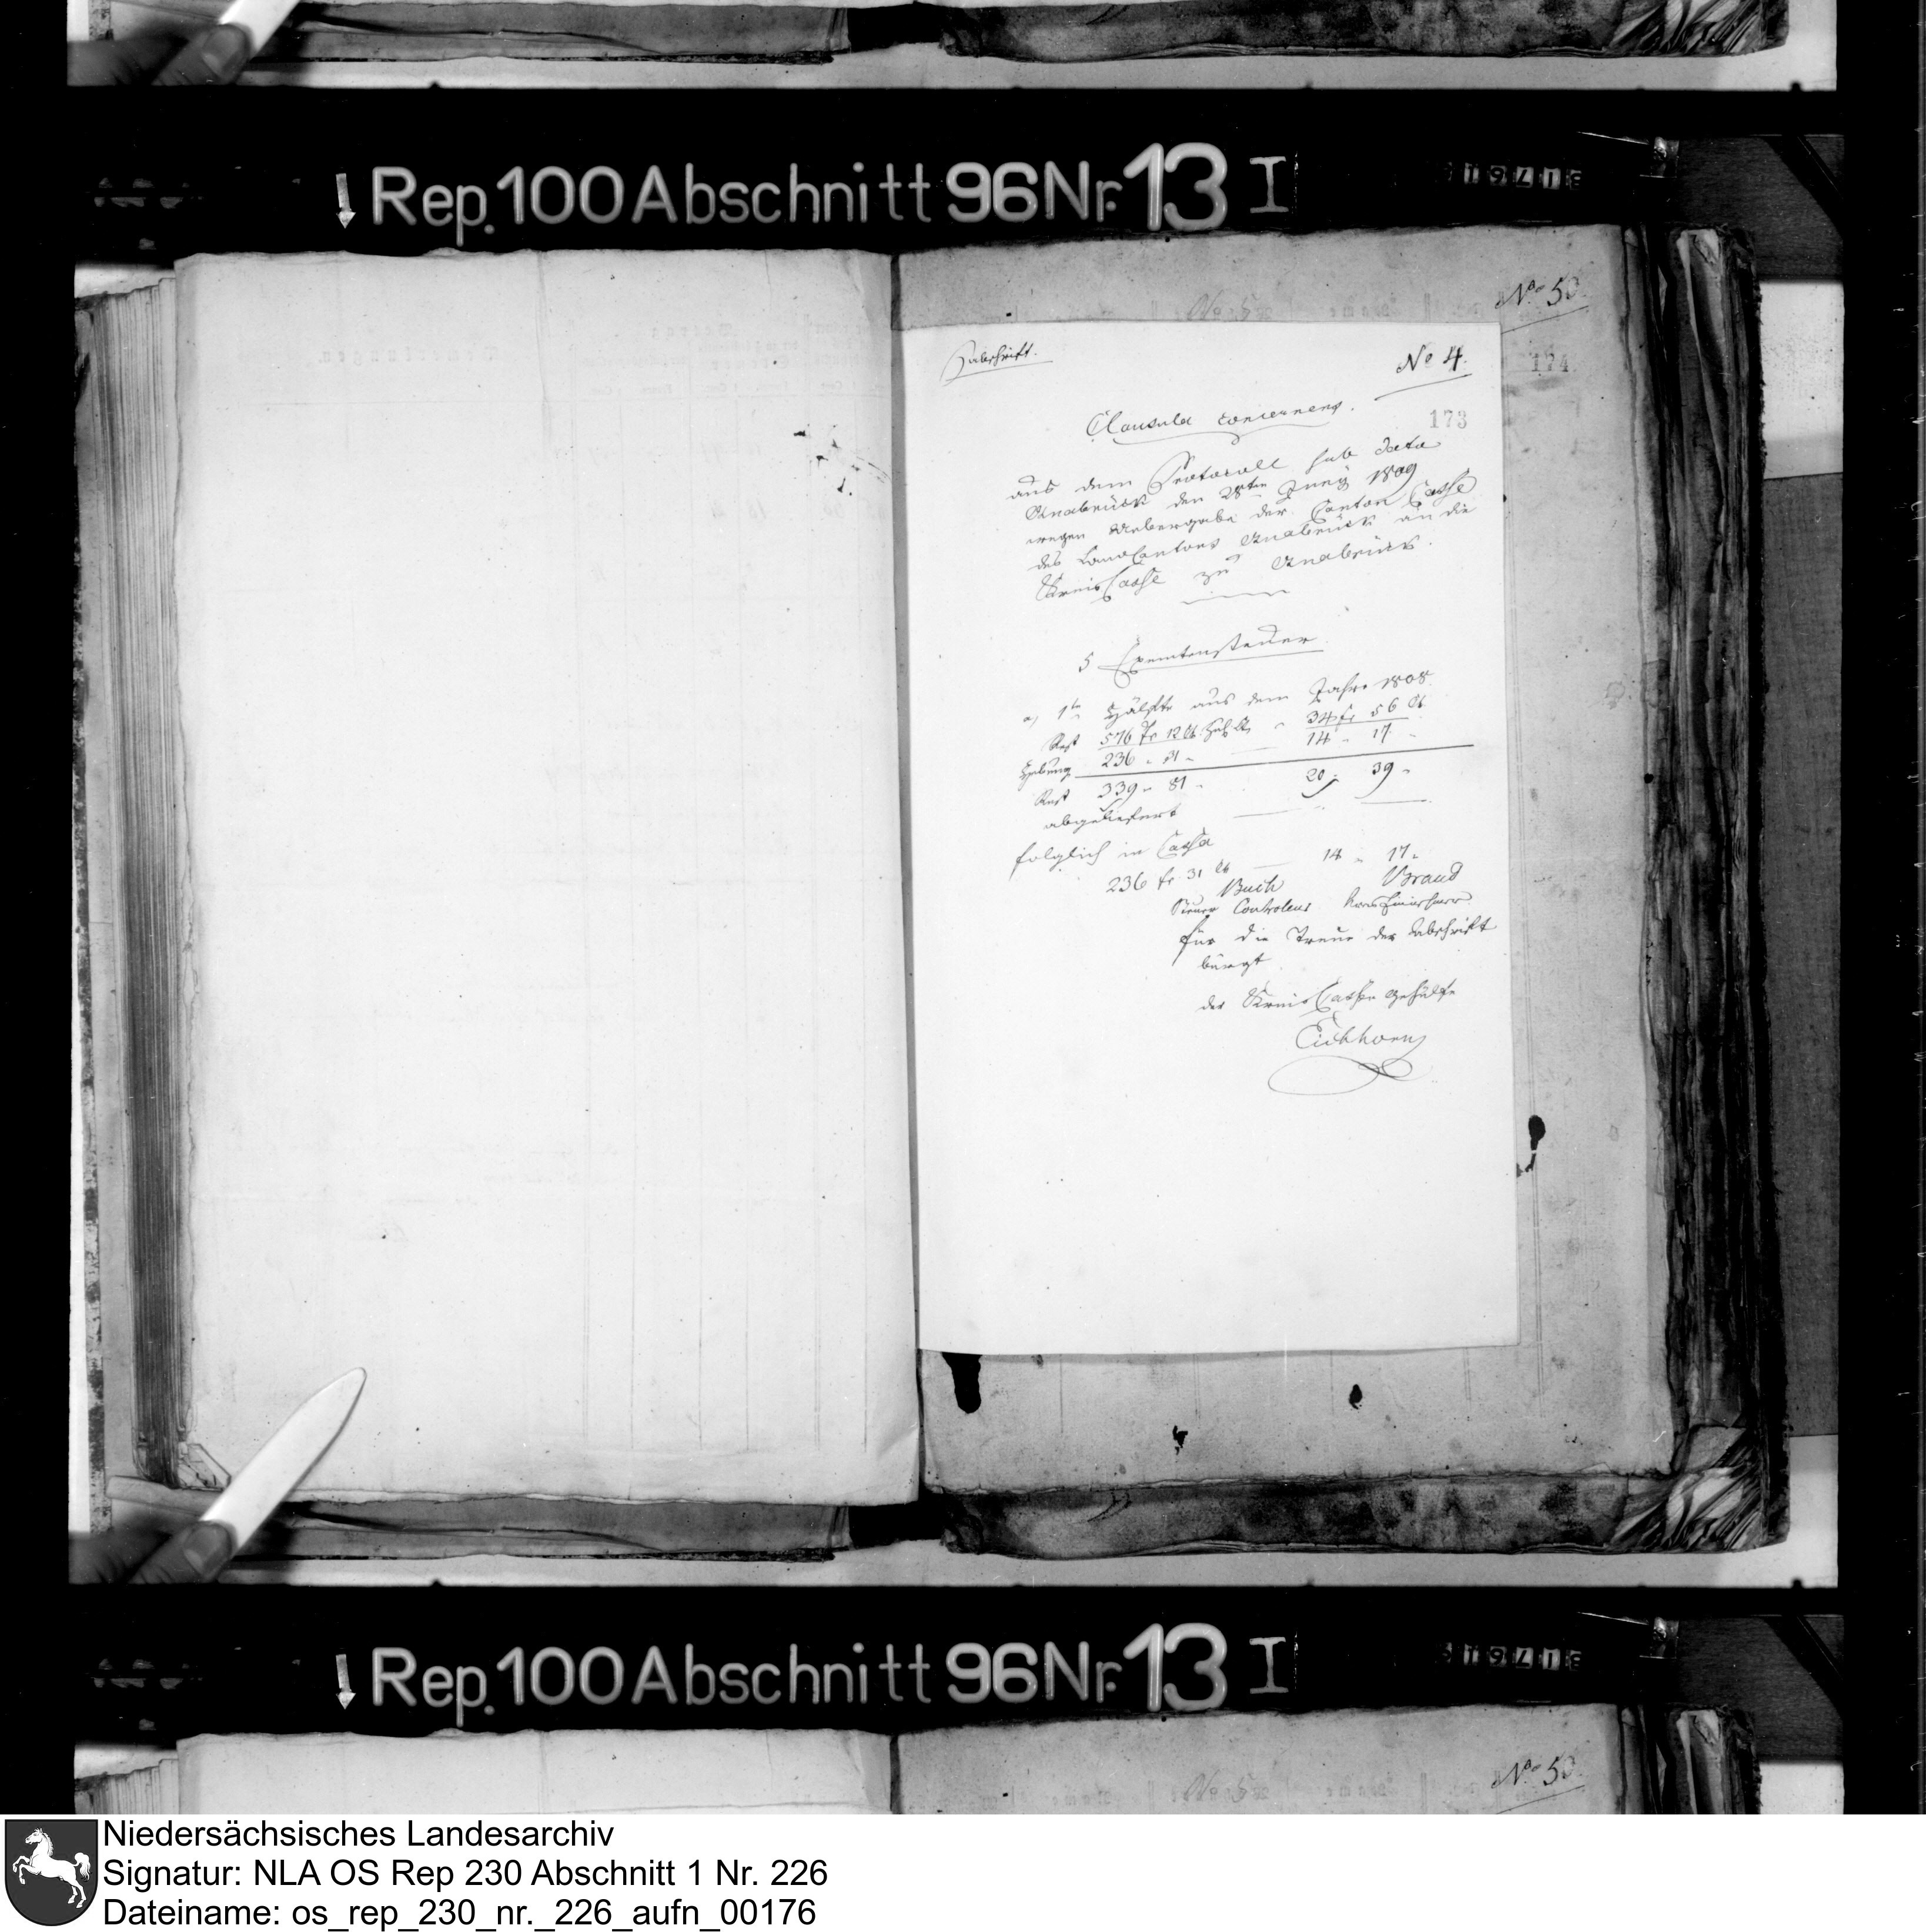 Rep. 100 Abschnitt 96 Nr. 13 I
No 50.
174
Abschrift.
No 4.
173
Clausula concernens.
aus dem Protocoll sub dato
Osnabrück den 28ten Juny 1809
wegen Uebergabe der Canton Casse
des Landcantons Osnabrück an die
Kreis Casse zu Osnabrück.
5 Exemtensteuer
a, 1te Hälfte aus dem Jahre 1808.
Rest 576 fr 12 Ct 34 fr 56 Ct
Hebung 236 " 31 " 14 " 17 "
Rest 339 " 81 " 20 " 39 "
abgeliefert
folglich in Cassa
236 fr 31 Ct 14 " 17 "
Buch Brand
Steuer Controleur
für die Treue der Abschrift
bürgt
der Kreis Casse Gehülfe
Eichhorn
Rep. 100 Abschnitt 96 Nr. 13 I
No 50.
Niedersächsisches Landesarchiv
Signatur: NLA OS Rep 230 Abschnitt 1 Nr. 226
Dateiname: os_rep_230_nr._226_aufn_00176